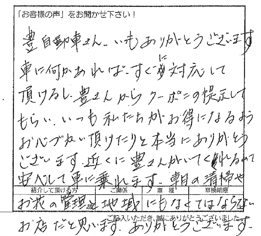 「お客様の声」をお聞かせ下さい！
豊自動車さん、いつもありがとうございます
車に何かあればすぐに対応して
頂けるし、豊さんからクーポンの提示して
もらい、いつも私たちがお得になるよう
お心づかい頂けたりと本当にありがとう
ございます。近くに豊さんがいてくれるので
安心して車に乗れます。朝の清掃や
紹介して頂ける方 ご関係 車種 車検時期
お花の管理と地域にもなくてはならない
お店だと思います。ありがとうございます。
ご記入いただき、誠にありがとうございました